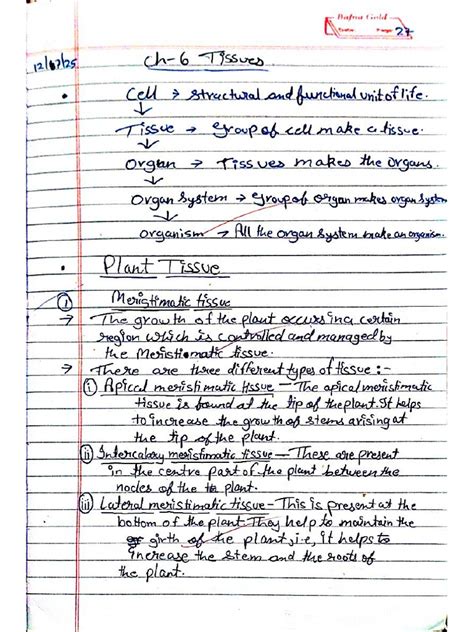 Bafna Gold
Date: Page: 27
12/07/25
Ch-6 Tissues
• Cell → structural and functional unit of life.
↓
Tissue → group of cell make a tissue.
↓
Organ → Tissues makes the organs.
↓
Organ System → Group of organ makes organ System
↓
Organism → All the organ System make an organism.
• Plant Tissue
① Meristimatic tissue
→ The growth of the plant occurs in a certain
region which is controlled and managed by
the Meristiomatic tissue.
→ There are three different types of tissue :-
(i) Apical merishmatic tissue - The apical meristimatic
tissue is found at the tip of the plant. It helps
to increase the growth of stems arising at
the tip of the plant.
(ii) Intercalary meristimatic tissue - These are present
in the centre part of the plant between the
nodes of the plant.
(iii) Lateral meristimatic tissue - This is present at the
bottom of the plant They help to maintain the
girth of the plant, i.e, it helps to
increase the stem and the roots of
the plant.